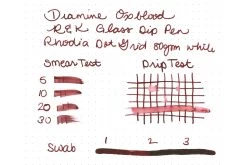 Diamine Oxblood
R&K Glass Dip Pen
Rhodia Dot Grid 80gsm white
Smear Test
Drip Test
5
10
20
30
Swab
1 2 3